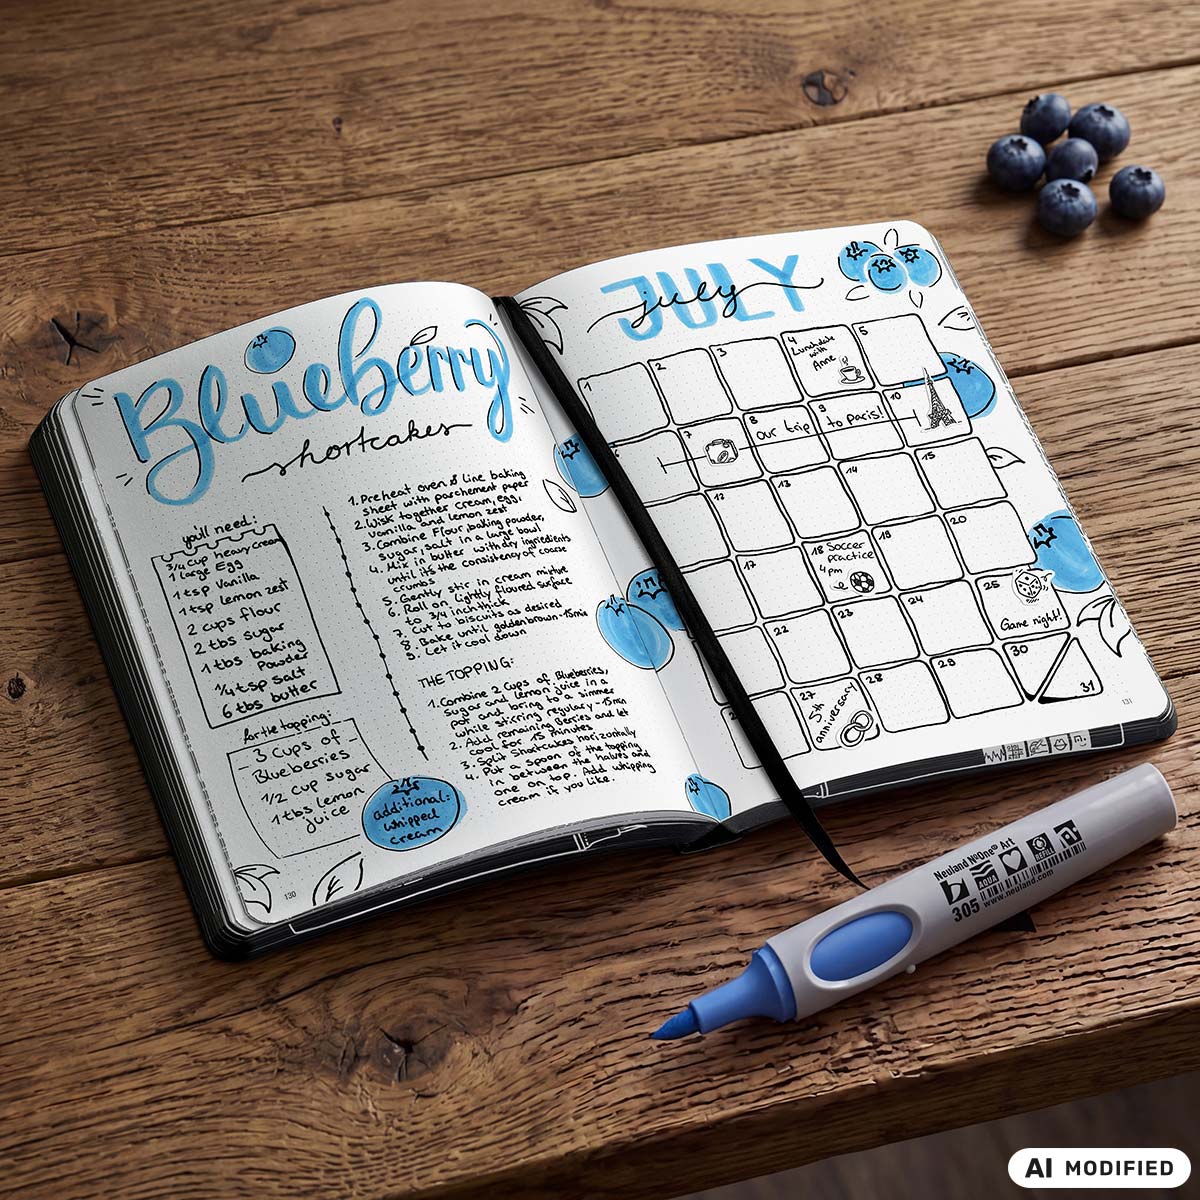 Blueberry
shortcakes
you'll need:
3/4 cup heavy cream
1 Large Egg
1 tsp Vanilla
1 tsp lemon zest
2 cups flour
2 tbs sugar
1 tbs baking
Powder
1/4 tsp salt
6 tbs butter
for the topping:
- 3 cups of -
Blueberries
1/2 cup sugar
1 tbs lemon
juice
additional:
whipped
cream
1. Preheat oven & Line baking
sheet with parchement paper
2. Wisk together cream, egg,
vanilla and lemon zest
3. Combine Flour, baking powder,
sugar, salt in a large bowl
4. Mix in butter with dry ingredients
until it's the consistency of coarse
crumbs
5. Gently stir in cream mixture
6. Roll on lightly floured surface
to 3/4 inch thick
7. Cut to biscuits as desired
8. Bake until golden brown - 15 min
9. Let it cool down
THE TOPPING:
1. Combine 2 Cups of Blueberries,
sugar and lemon juice in a
pot and bring to a simmer
while stirring regulary - 15 min
2. Add remaining Berries and let
cool for 15 minutes
3. Split Shortcakes horizontally
4. Put a spoon of the topping
in between the halves and
one on top. Add whipping
cream if you like.
130
JULY
july
1 2 3 4 5
Lunchdate
with
Anne
6 7 8 9 10
our trip to Paris!
12 13 14 15
17 18 19 20
Soccer
practice
4 pm
22 23 24 25
Game night!
27 28 29 30 31
5th
anniversary
131
Neuland NoOne® Art
AQUA
REFILL
305 www.neuland.com
AI MODIFIED